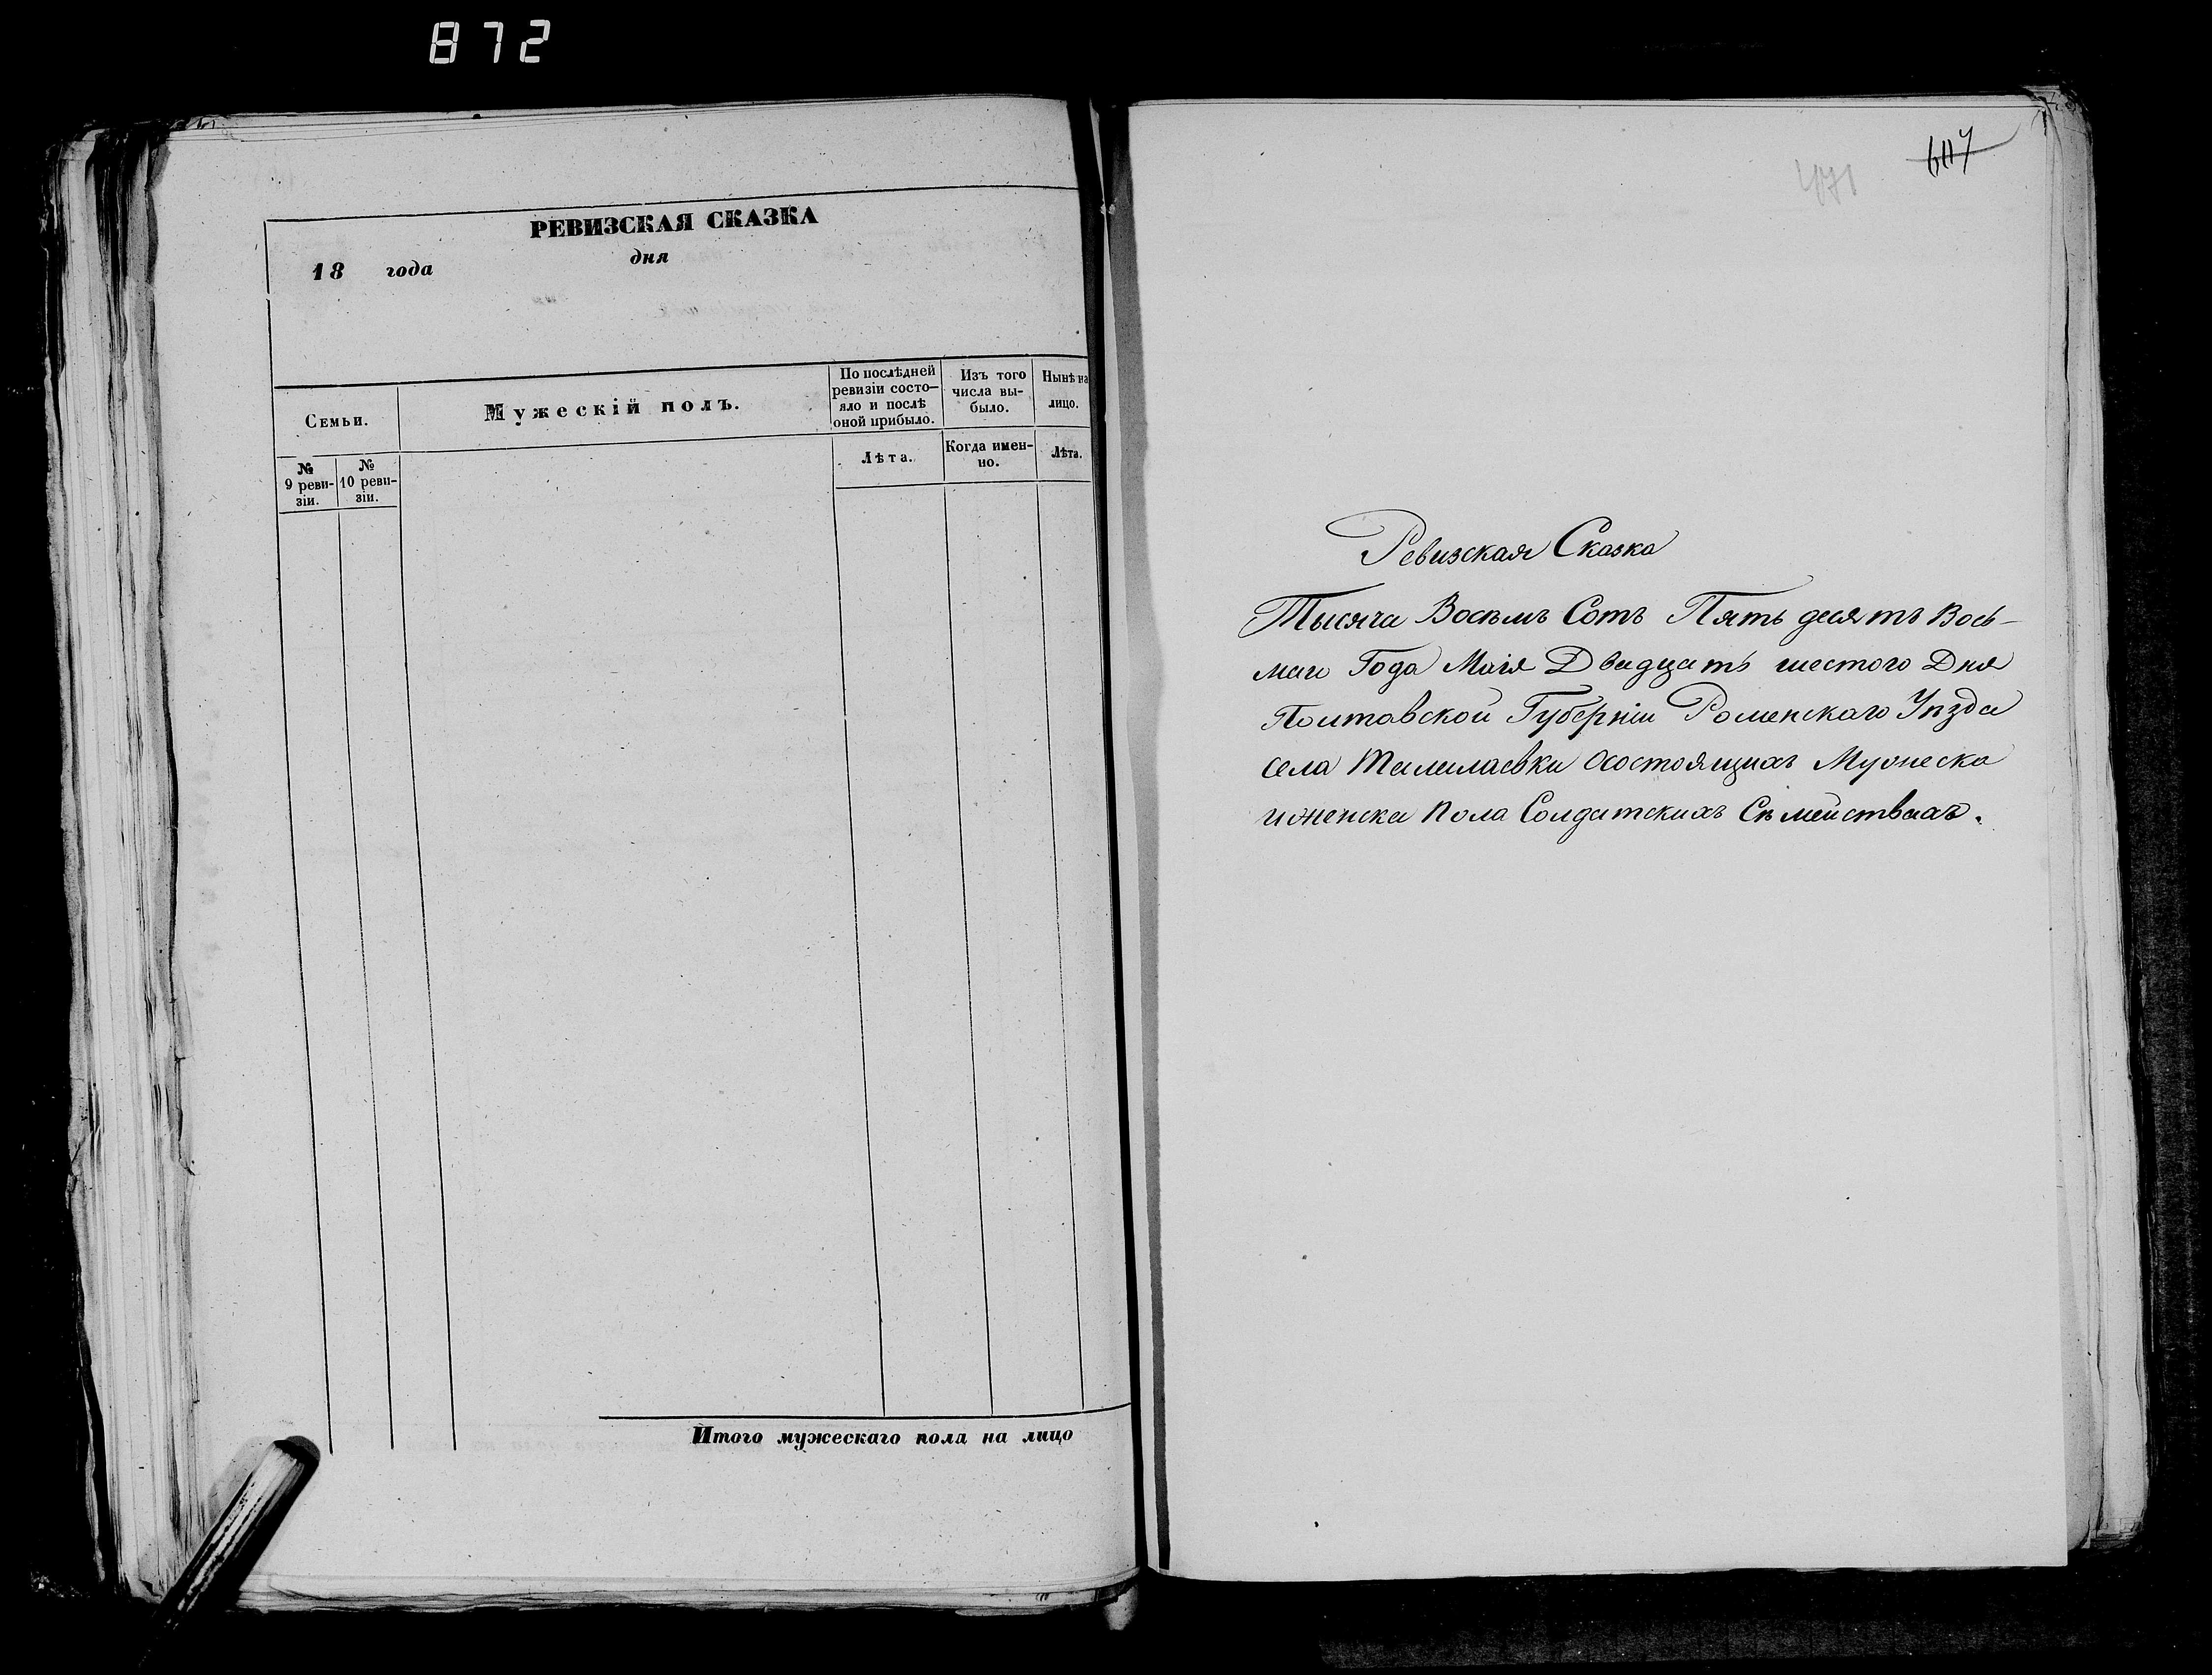 872
РЕВИЗСКАЯ СКАЗКА
18 года дня
Семьи.
Мужескій полъ.
По послѣдней
ревизіи состо-
яло и послѣ
оной прибыло.
Изъ того
числа вы-
было.
Нынѣ на
лицо.
№
9 реви-
зіи.
№
10 реви-
зіи.
Лѣта.
Когда имен-
но.
Лѣта.
Итого мужескаго пола на лицо
471
Ревизская Сказка
Тысяча Восьмъ Сотъ Пять десятъ Вось-
маго Года Маія Двадцать шестого Дня
Полтавской Губерніи Роменскаго Уѣзда
села осостоящихъ Мужеска
иженска Пола Солдатскихъ Сѣмействахъ.